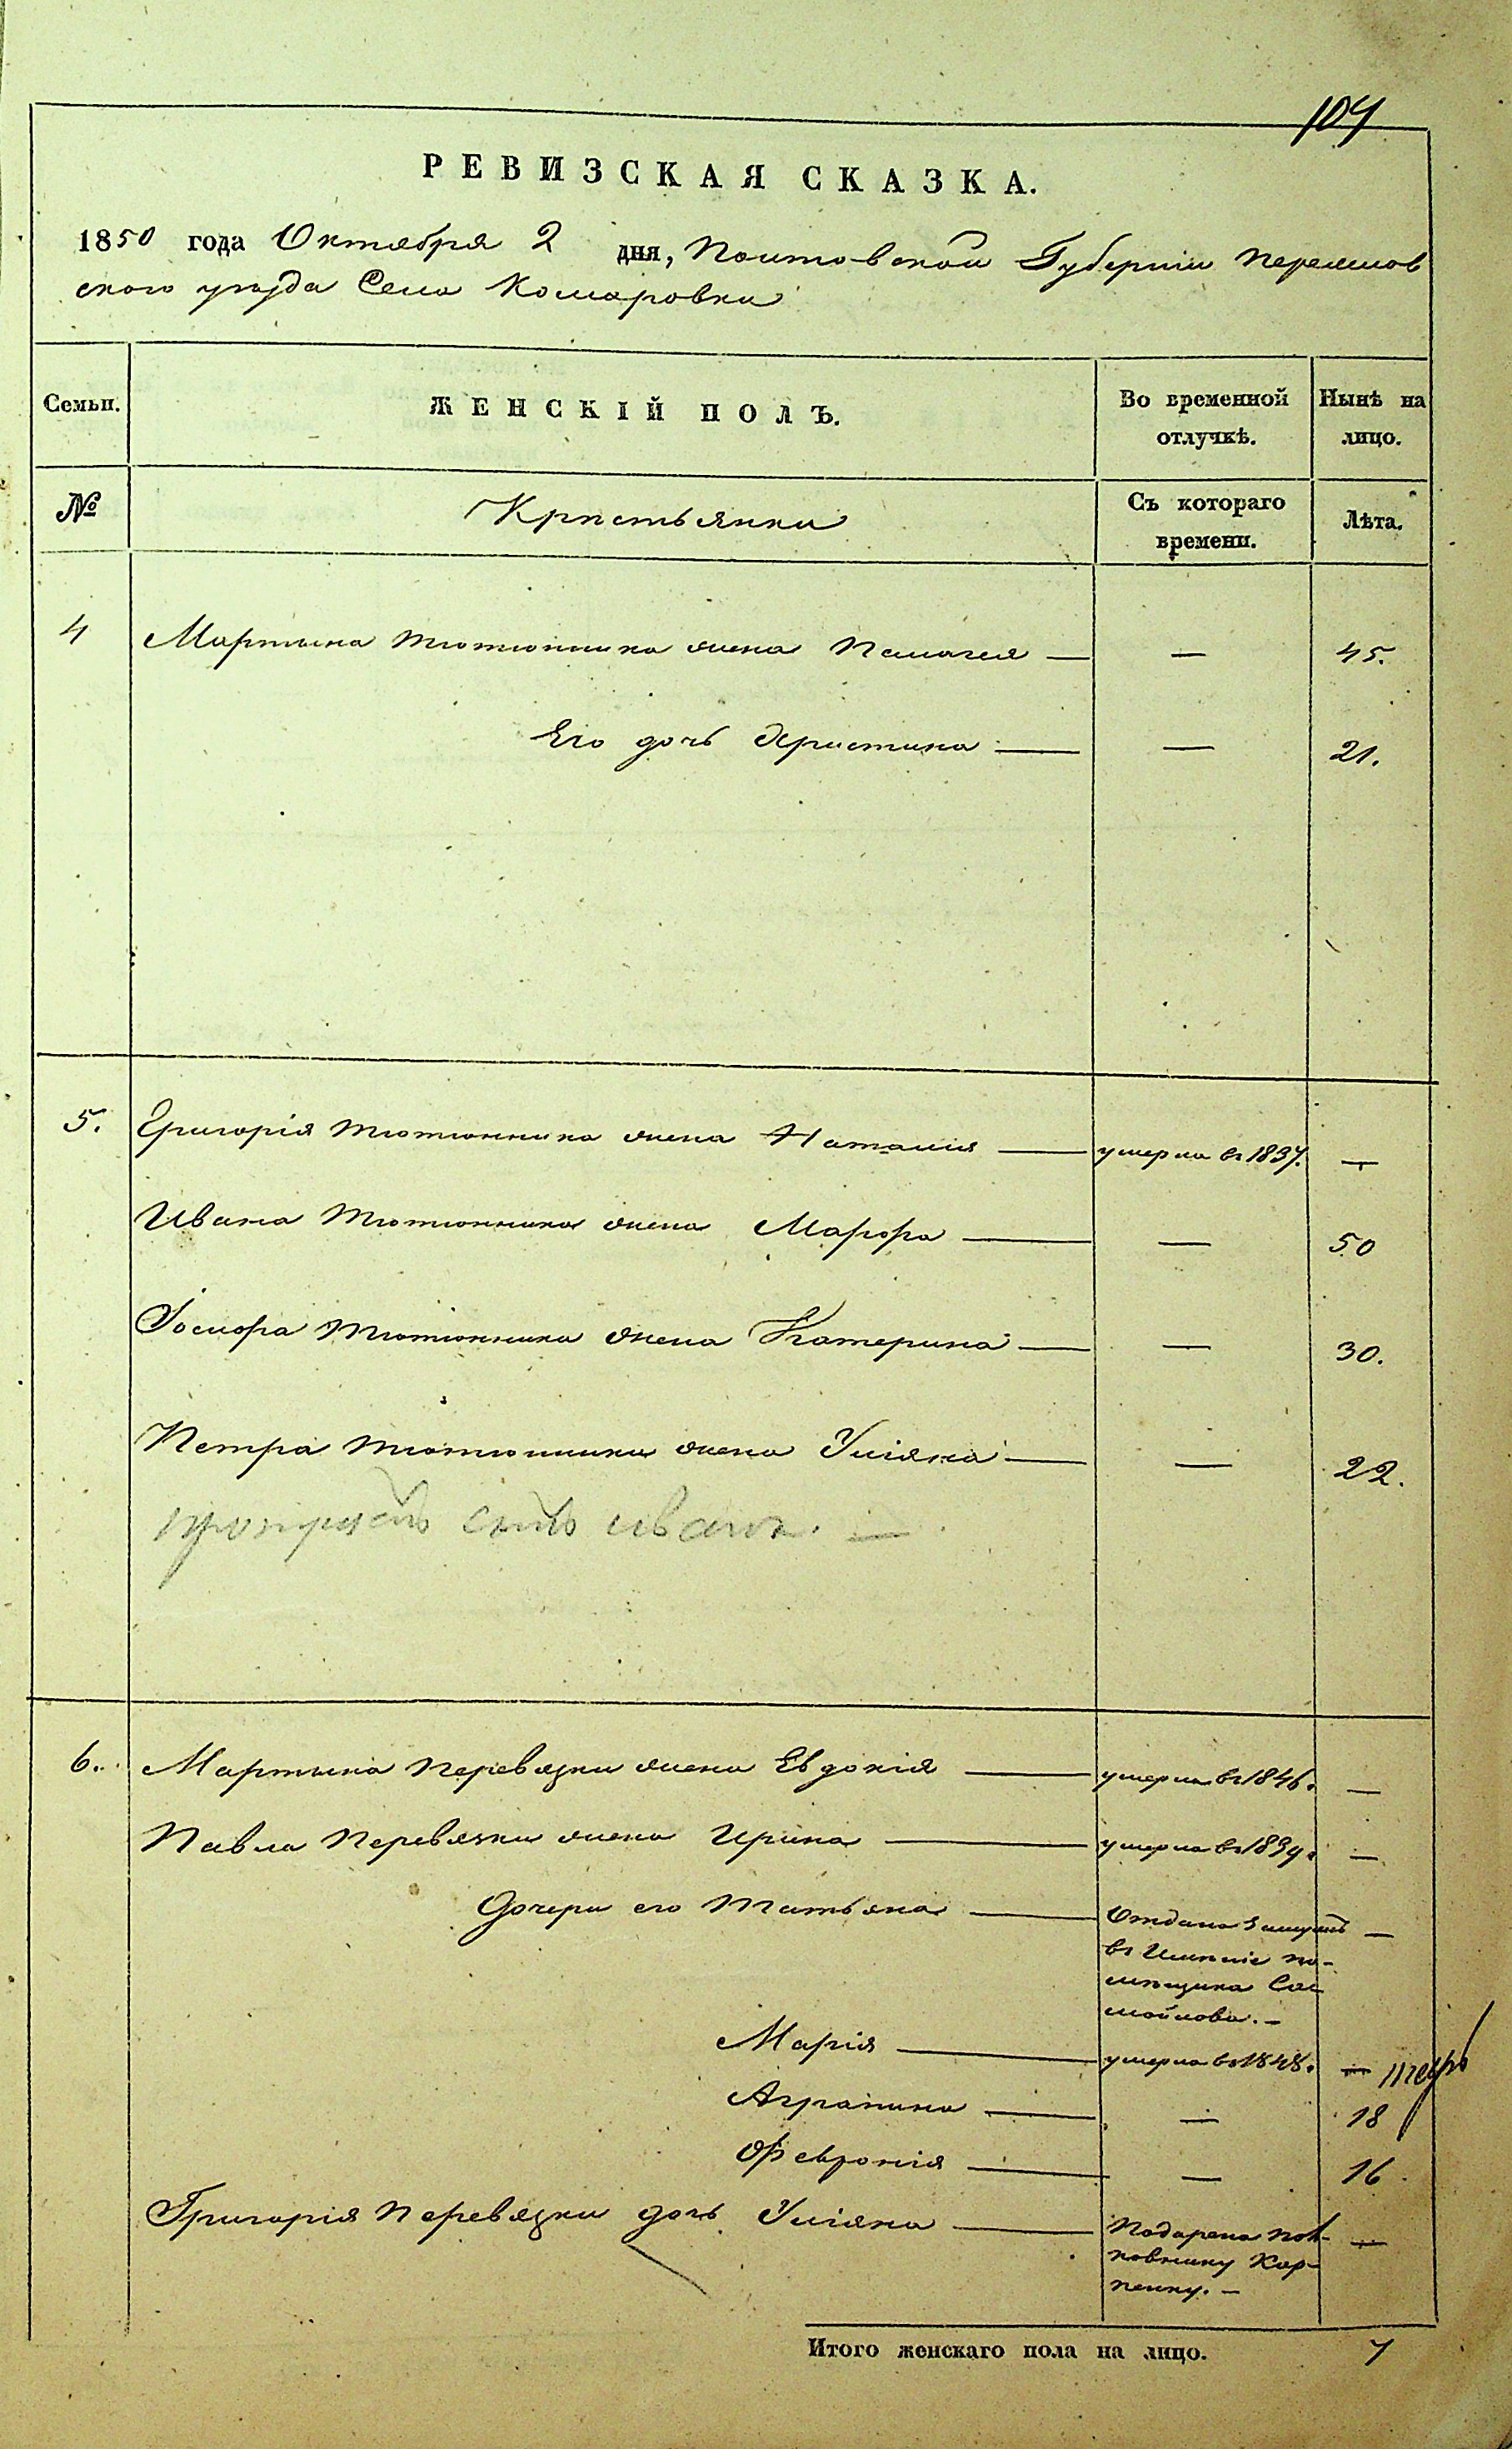 104
РЕВИЗСКАЯ СКАЗКА.
1850 года Октября 2 дня, Полтовской Губерніи Переяслов
ского уѣзда Села Комаровки
Семьи. ЖЕНСКІЙ ПОЛЪ. Во временной отлучкѣ. Нынѣ на лицо.
№ Крѣстьянки Съ котораго времени. Лѣта.
4 Мартына Тютюнника жена Пелагея — — 45.
Его дочь Христина — — 21.
5. Григорія Тютюнника жена Наталия — умерла въ 1837. —
Ивана Тютюнника жена Марфа — — 50
Іосифа Тютюнника жена Катерина — — 30.
Петра Тютюнника жена Уліяна — — 22.
сынъ Иванъ. —
6. Мартына Перевязки жена Евдокія — умерла въ 1846. —
Павла Перевязки жена Ирина — умерла въ 1839. —
Дочери его Татьяна — Отдана замужъ —
въ Имѣніе по-
мѣщика Са-
мойлова. —
Марія — умерла въ 1848. —
Аграпина — — 18
Февронія — — 16
Григорія Перевязки дочь Уліяна — Подарена пол- —
ковнику Кар-
пенку. —
Итого женскаго пола на лицо. 7